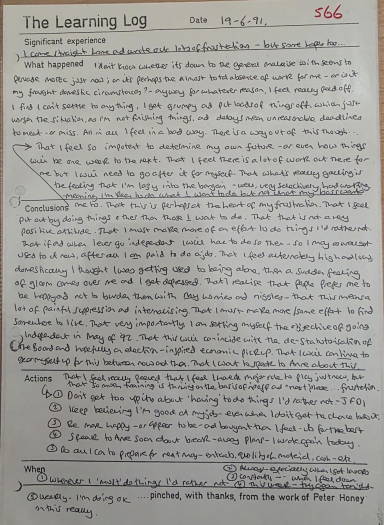 566
The Learning Log Date 19-6-91.
Significant experience
I come straight home and write out lots of frustration - but some hope too...
What happened I don't know whether its down to the general malaise with seems to
pervade MOTEC just now; or its perhaps the almost total absence of work for me - or is it
my fraught domestic circumstances? - anyway for whatever reason, I feel really pissed off.
I find I can't settle to anything, I get grumpy and put loads of things off, which just
worsen the situation, as I'm not finishing things, and delays mean unreasonable deadlines
to meet - or miss. All in all I feel in a bad way. There is a way out of this though...
That I feel so impotent to determine my own future - or even how things
will be one week to the next. That I feel there is a lot of work out there for
me but I will need to go after it for myself. That what's really galling is
the feeling that I'm lazy into the bargain - well, very selectively hard working
meaning I'm keen to do what I want to do but not what my boss wants
me to. That this is perhaps at the heart of my frustration. That I feel
Conclusions
put out by doing things other than those I want to do. That that is not a very
positive attitude. That I must make more of an effort to do things I'd rather not.
That if and when I ever go independent I will have to do so then - so I may as well get
used to it now, after all I am paid to do a job. That I feel alternately high and low
domestically. I thought I was getting used to being alone, then a sudden feeling
of gloom comes over me and I get depressed. That I realise that people prefer me to
be happy and not to burden them with my worries and niggles - that this means a
lot of painful suppression and internalising. That I must make more/some effort to find
somewhere to live. That very importantly I am setting myself the objective of going
independent in May of 92. That this will co-incide with the de-statutorisation of
the Board and hopefully an election-inspired economic pickup. That I will continue to
gear myself up for this between now and then. That I want to speak to Anne about this.
Actions
That I feel really proud that I feel I had a major role to play just now, but
① Don't get too uptight about 'having' to do things I'd rather not - JFDI
② Keep believing I'm good at my job - even when I don't get the chance to do it.
③ Be more happy - or appear to be - and buoyant than I feel - its for the best
④ Speak to Anne soon about break-away plans - I wrote again today.
⑤ Do all I can to prepare for next May - contacts, portfolio of material, cash etc.
When
① Whenever I 'must' do things I'd rather not
② Always - especially when I get knocks
③ Constantly - while I feel down
④ This week
⑤ Weekly - I'm doing OK
on this really.
....pinched, with thanks, from the work of Peter Honey